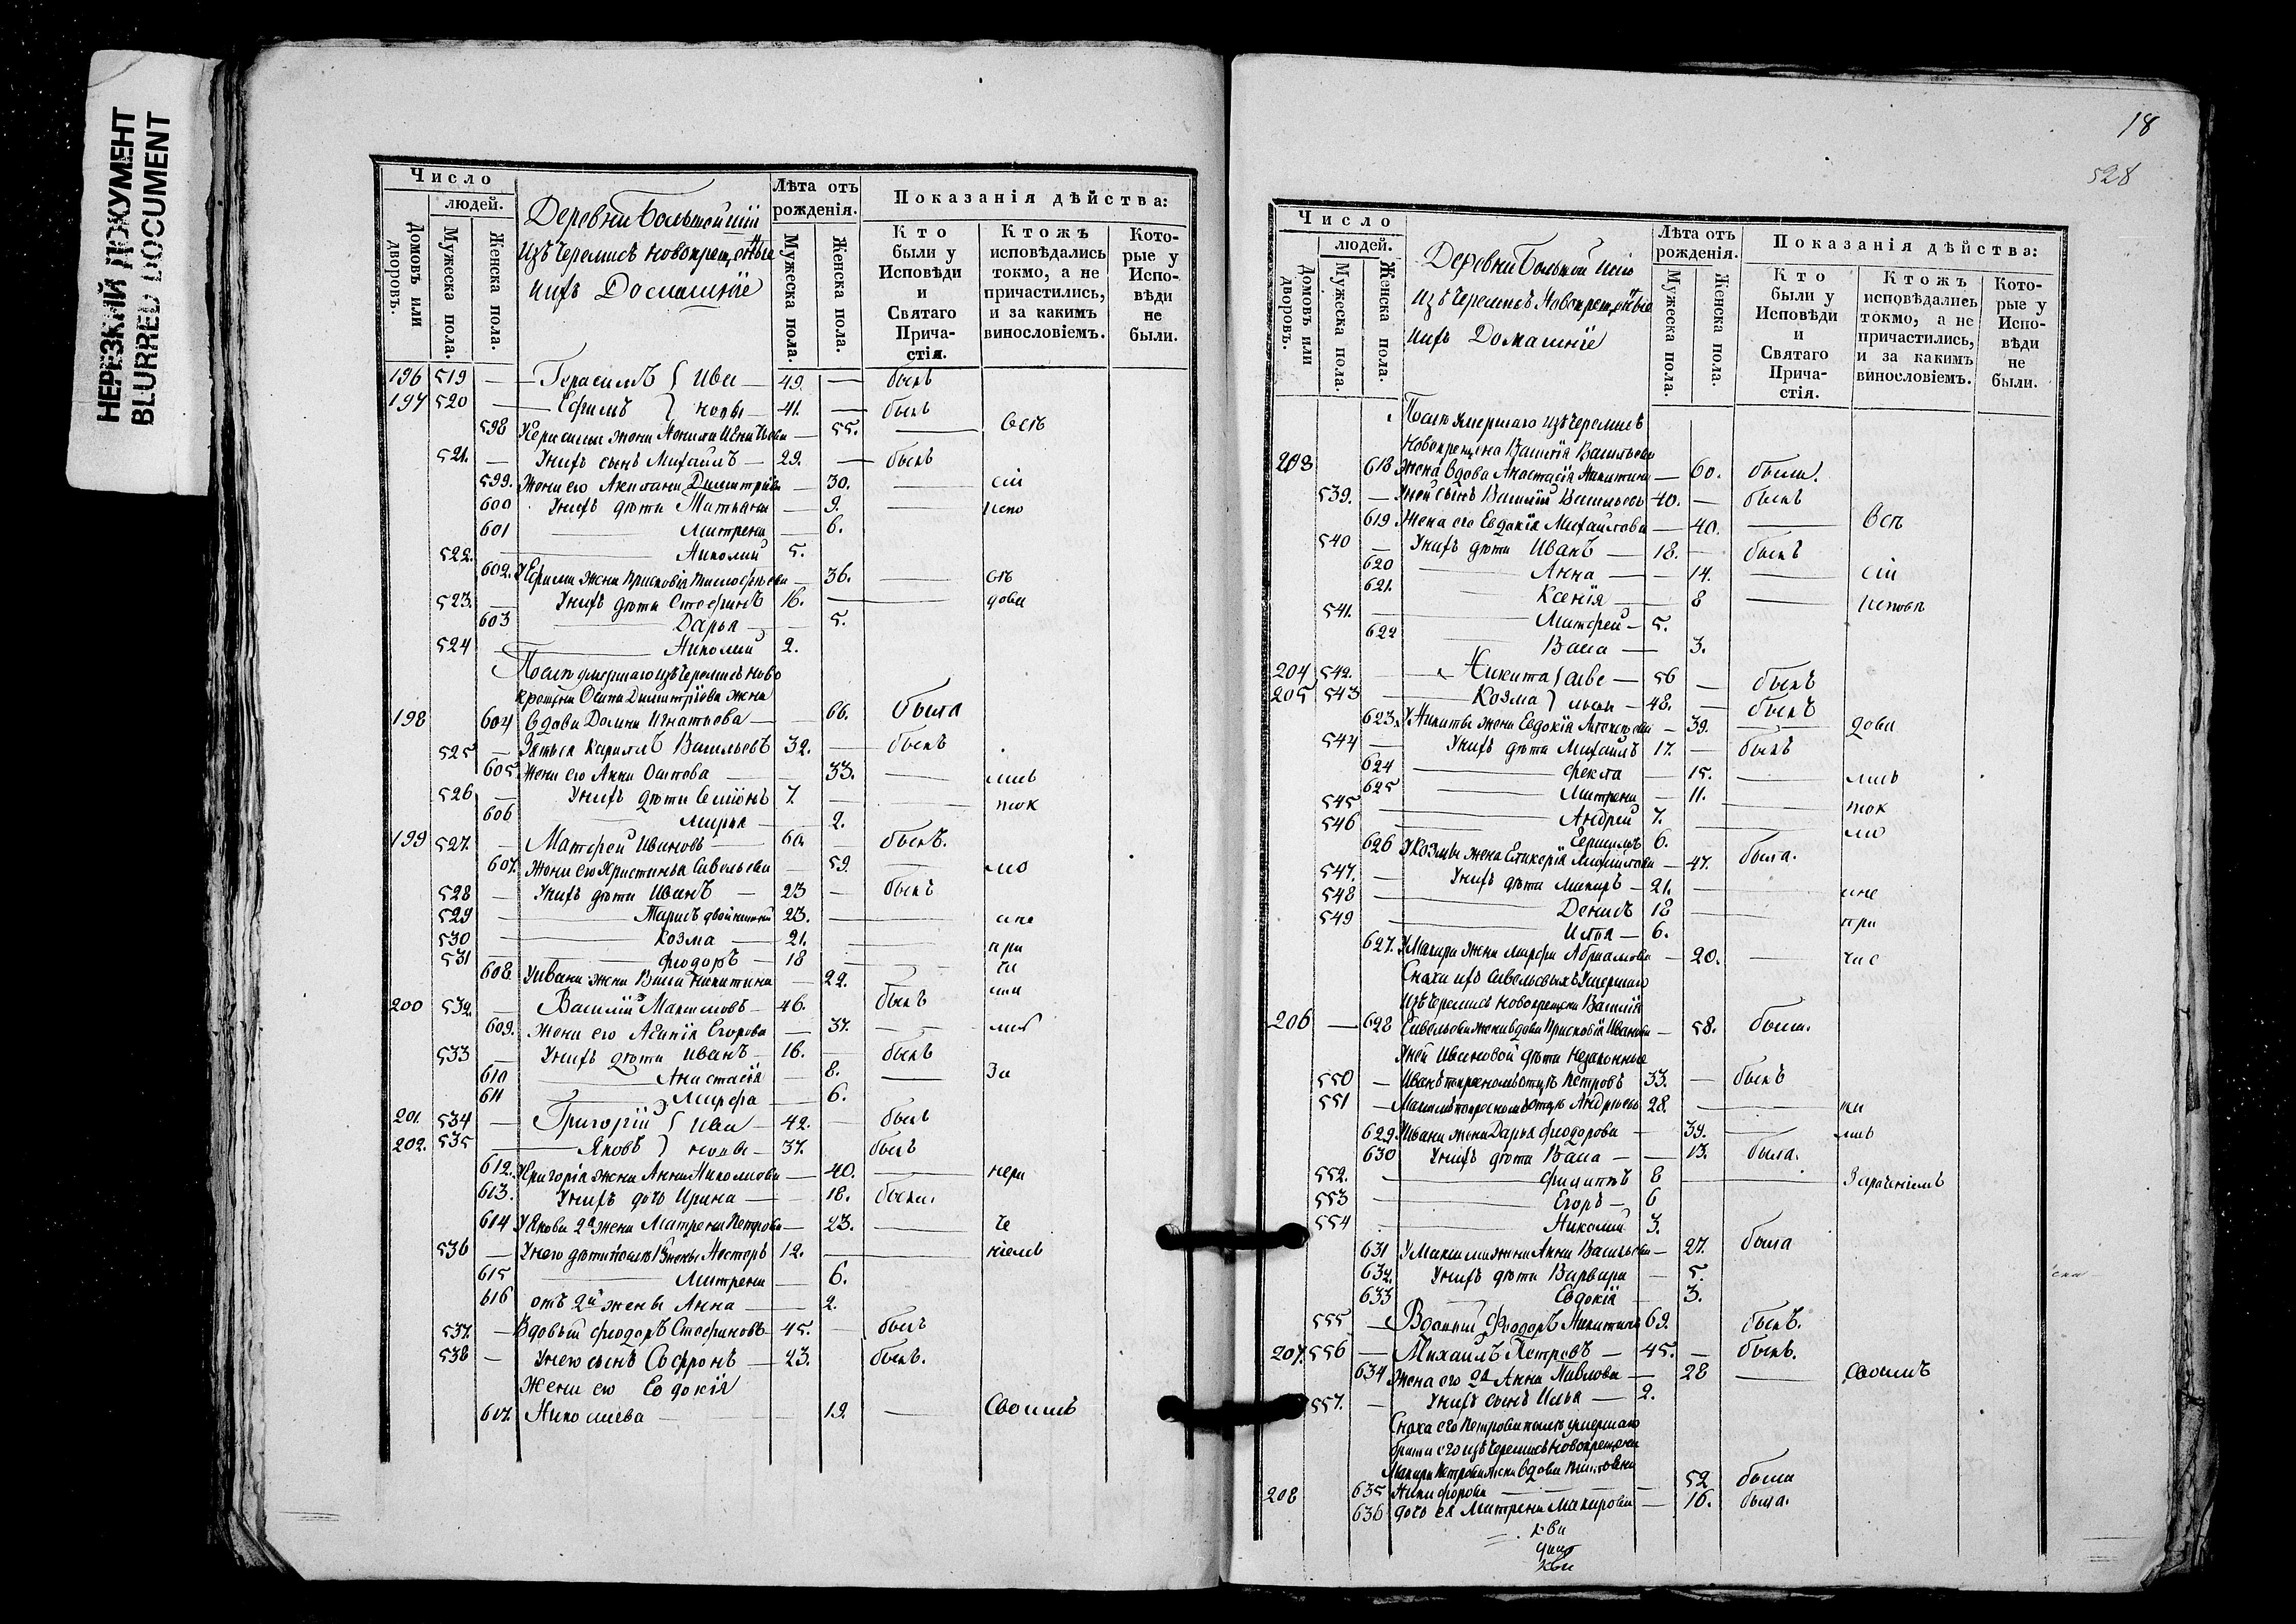 НЕРЕЗКИЙ ДОКУМЕНТ
BLURRED DOCUMENT
Число
людей.
Домовъ или дворовъ.
Мужеска пола.
Женска пола.
Деревни Большой
изъ Черемисъ новокрещеные
ихъ Домашніе
Лѣта отъ рожденія.
Мужеска пола.
Женска пола.
Показанія дѣйства:
Кто были у Исповѣди и Святаго Причастія.
Ктожъ исповѣдались токмо, а не причастились, и за какимъ винословіемъ.
Которые у Исповѣди не были.
196 519 — Герасимъ } Ива — 49. — былъ
197 520 — Ефимъ } новы — 41. — былъ
598 жена — 55. — всѣ
521. — У нихъ сынъ Михаилъ — 29. — былъ
599. Жена его Димитріева — 30. — сіи
600 У нихъ дѣти Татьяна — 9. — испо
601 — Матрена — 6.
522. — Николай 5.
602. У Ефима жена — 36. — вѣ
523. — У нихъ дѣти Стефанъ 16. — дова
603 — Дарья — 5.
524 — Николай 2.
Послѣ умершаго изъ Черемисъ ново
крещена Осипа Димитріева жена
198 604 вдова Игнатьева — 66. была
525 — Васильевъ 32. — былъ
605. Жена его Анна Осипова — 33. — лись
526 — У нихъ дѣти Семіонъ 7. — ток
606 — Марья — 2.
199 527. — Матфей Ивановъ — 60. былъ.
607. Жена его Христинья Савельева — 59. — мо
528 — У нихъ дѣти Иванъ — 23 — былъ
529 — 23. — а не
530 — Козма — 21. — при
531 — Феодоръ — 18 — ча
608. У Ивана жена Васа Никитина — 22. — сти
200 532. — Василій Максимовъ — 46. былъ
609. Жена его Егорова — 37. — лись
533 — У нихъ дѣти Иванъ — 16. — былъ
610 — Анастасія — 8. — За
611 — Марфа — 6.
201. 534 — Григорій } Ива — 42. — былъ
202. 535 — Яковъ } новы — 37. былъ
612. У Григорія жена Анна Николаева — 40. — нера
613. У нихъ дочь Ирина — 16. была.
614 У Якова 2я жена Матрена Петрова — 23. — че
536 — Несторъ 12. — ніемъ
615 — Матрена — 6.
616 отъ 2й жены Анна — 2.
537. — Вдовый Феодоръ Стефановъ 45. — былъ
538 — У него сынъ Софронъ — 23. былъ.
Жена его Евдокія
617. Николаева — 19. — Своимъ
18
528
Число
людей.
Домовъ или дворовъ.
Мужеска пола.
Женска пола.
Деревни Большой
изъ Черемисъ Новокрещеные
ихъ Домашніе
Лѣта отъ рожденія.
Мужеска пола.
Женска пола.
Показанія дѣйства:
Кто были у Исповѣди и Святаго Причастія.
Ктожъ исповѣдались токмо, а не причастились, и за какимъ винословіемъ.
Которые у Исповѣди не были.
Послѣ умершаго изъ Черемисъ
Новокрещена Василія Васильева
203 618 жена вдова Анастасія Никитина — 60. была.
539. — У ней сынъ Василій Васильевъ 40. — былъ
619. Жена его Евдокія Михайлова — 40. — всѣ
540 — У нихъ дѣти Иванъ — 18. — былъ
620 — Анна — 14. — сіи
621. — Ксенія — 8 — исповѣ
541. — Матфей — 5.
622 — Васа — 3.
204 542. — Никита } Саве — 56 — былъ
205 543 — Козма } льевы — 48. — былъ
623. У Никиты жена Евдокія — 39. — дова
544 — У нихъ дѣти Михаилъ 17. — былъ
624 — Фекла — 15. — лись
625 — Матрена — 11. — ток
545 — Андрей 7. — мо
546 — Герасимъ 6.
626 У Козмы жена — 47. была.
547. — У нихъ дѣти Макаръ — 21. — а не
548 — Денисъ 18 — при
549 — Илья — 6.
627. У Макара жена Марфа Абрамова — 20. — час
Сноха ихъ Савельевыхъ умершаго
изъ Черемисъ новокрещена Василія
206 — 628 Савельева жена вдова Иванова — 58. была.
У ней Ивановой дѣти незаконные
550 — Иванъ Петровъ 33. — былъ
551 — Максимъ Андреевъ 28. — ти
629. У Ивана жена Дарья Феодорова — 39. — лись
630 У нихъ дѣти Васа — 13. была.
552. — Филиппъ 8 — Нераченіемъ
553 — Егоръ — 6
554 — Николай 3.
631 У Максима жена Анна Васильева — 27. была
632. У нихъ дѣти Варвара — 5.
633 — Евдокія — 3.
555 — Вдовый Феодоръ Никитинъ 69. былъ.
207. 556 — Михаилъ Петровъ — 45. — былъ.
634 Жена его 2я Анна Павлова — 28 — Своимъ
557. — У нихъ сынъ Илья — 2.
Сноха его Петрова послѣ умершаго
брата его изъ Черемисъ новокрещена
Макара Петрова жена вдова
208 635 Никифорова — 52 была
636 дочь ея Матрена Макарова — 16. была.